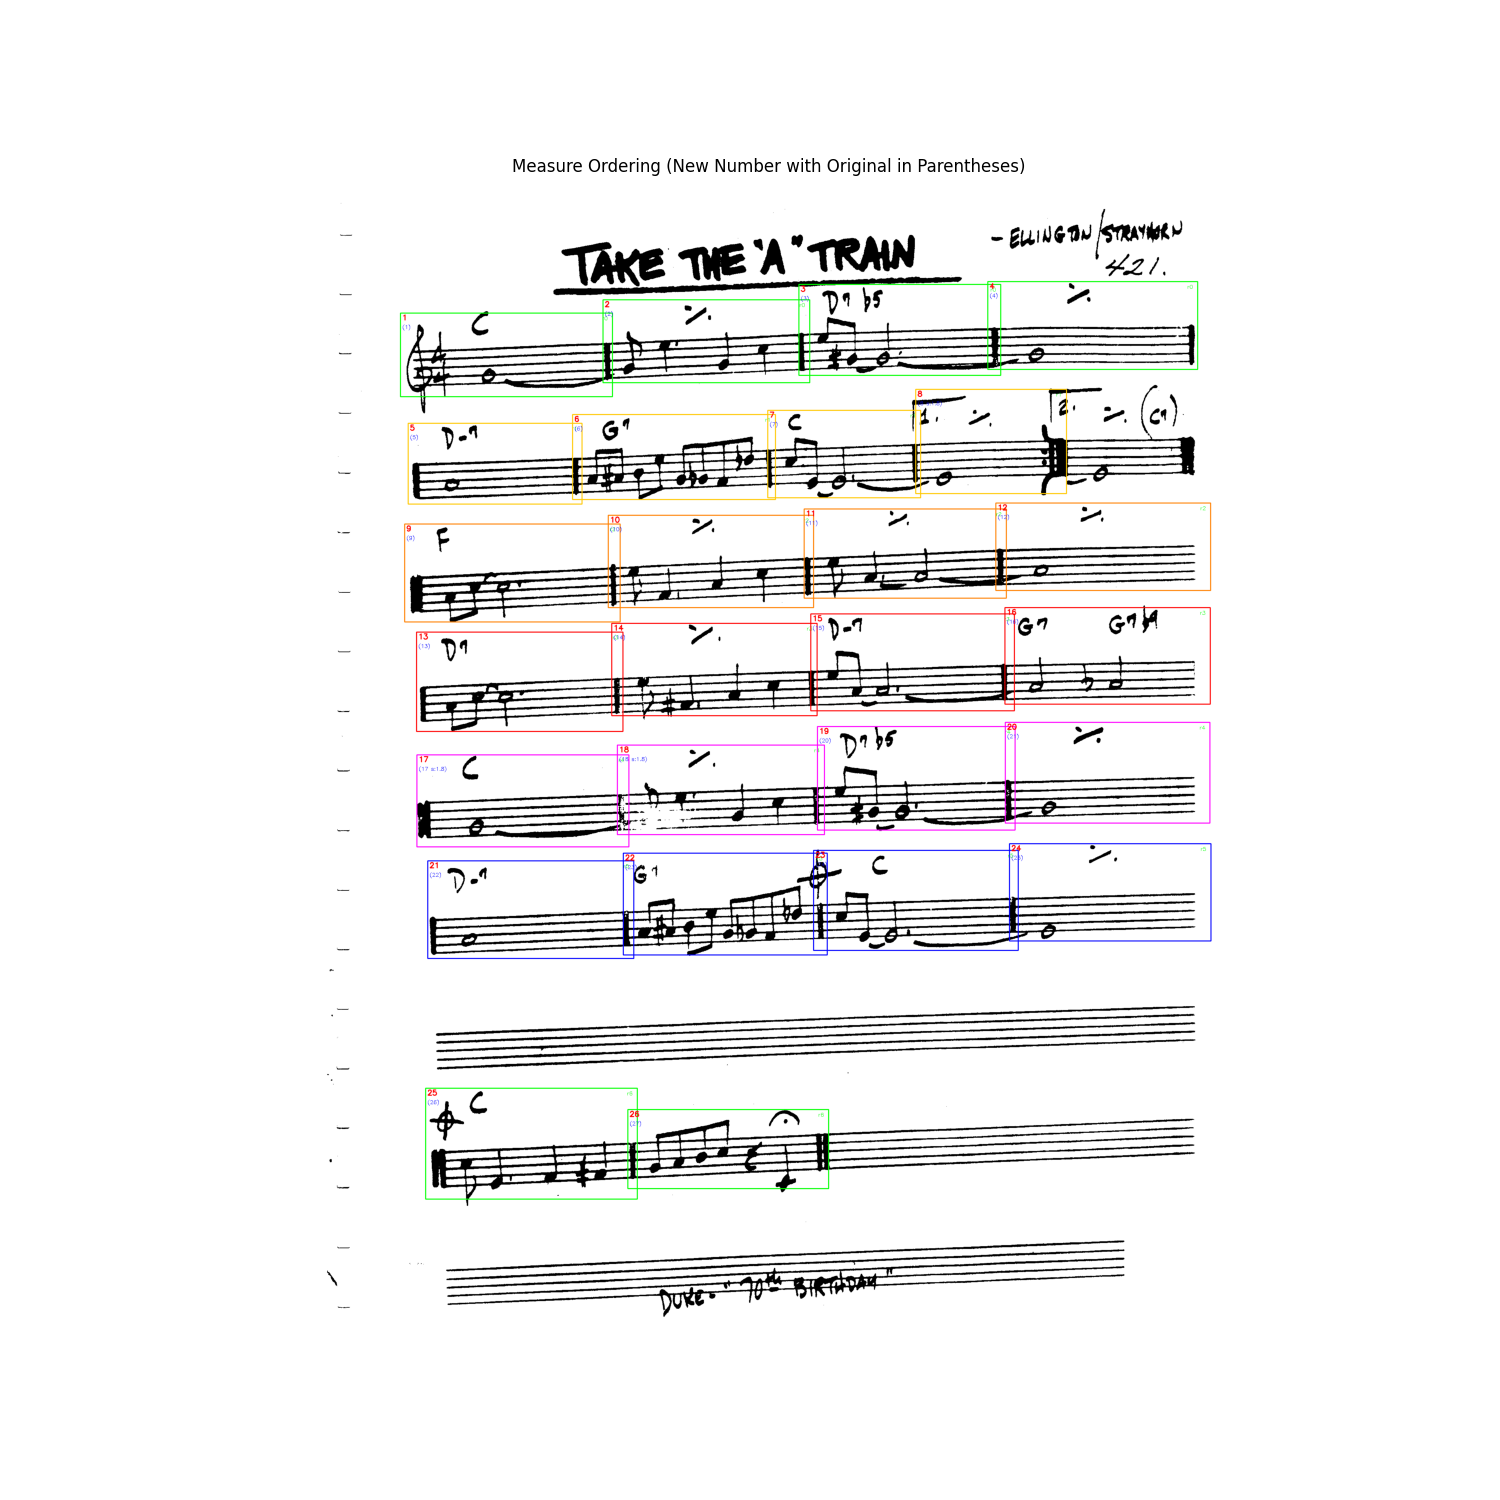 Measure Ordering (New Number with Original in Parentheses)
TAKE THE "A" TRAIN
- ELLINGTON/STRAYHORN
421.
1 (1) C
2 (2)
3 (3) D7 b5
4 (4)
5 (5) D-7
6 (6) G7
7 (7) C
8 1.
2. (C7)
9 (9) F
10 (10)
11 (11)
12 (12)
13 (13) D7
14 (14)
15 (15) D-7
16 (16) G7 G7b9
17 (17 s:1.8) C
18
19 (20) D7 b5
20 (21)
21 (22) D-7
22 G7
23 C
24 (25)
25 (26) C
26 (27)
DUKE- "70th BIRTHDAY"